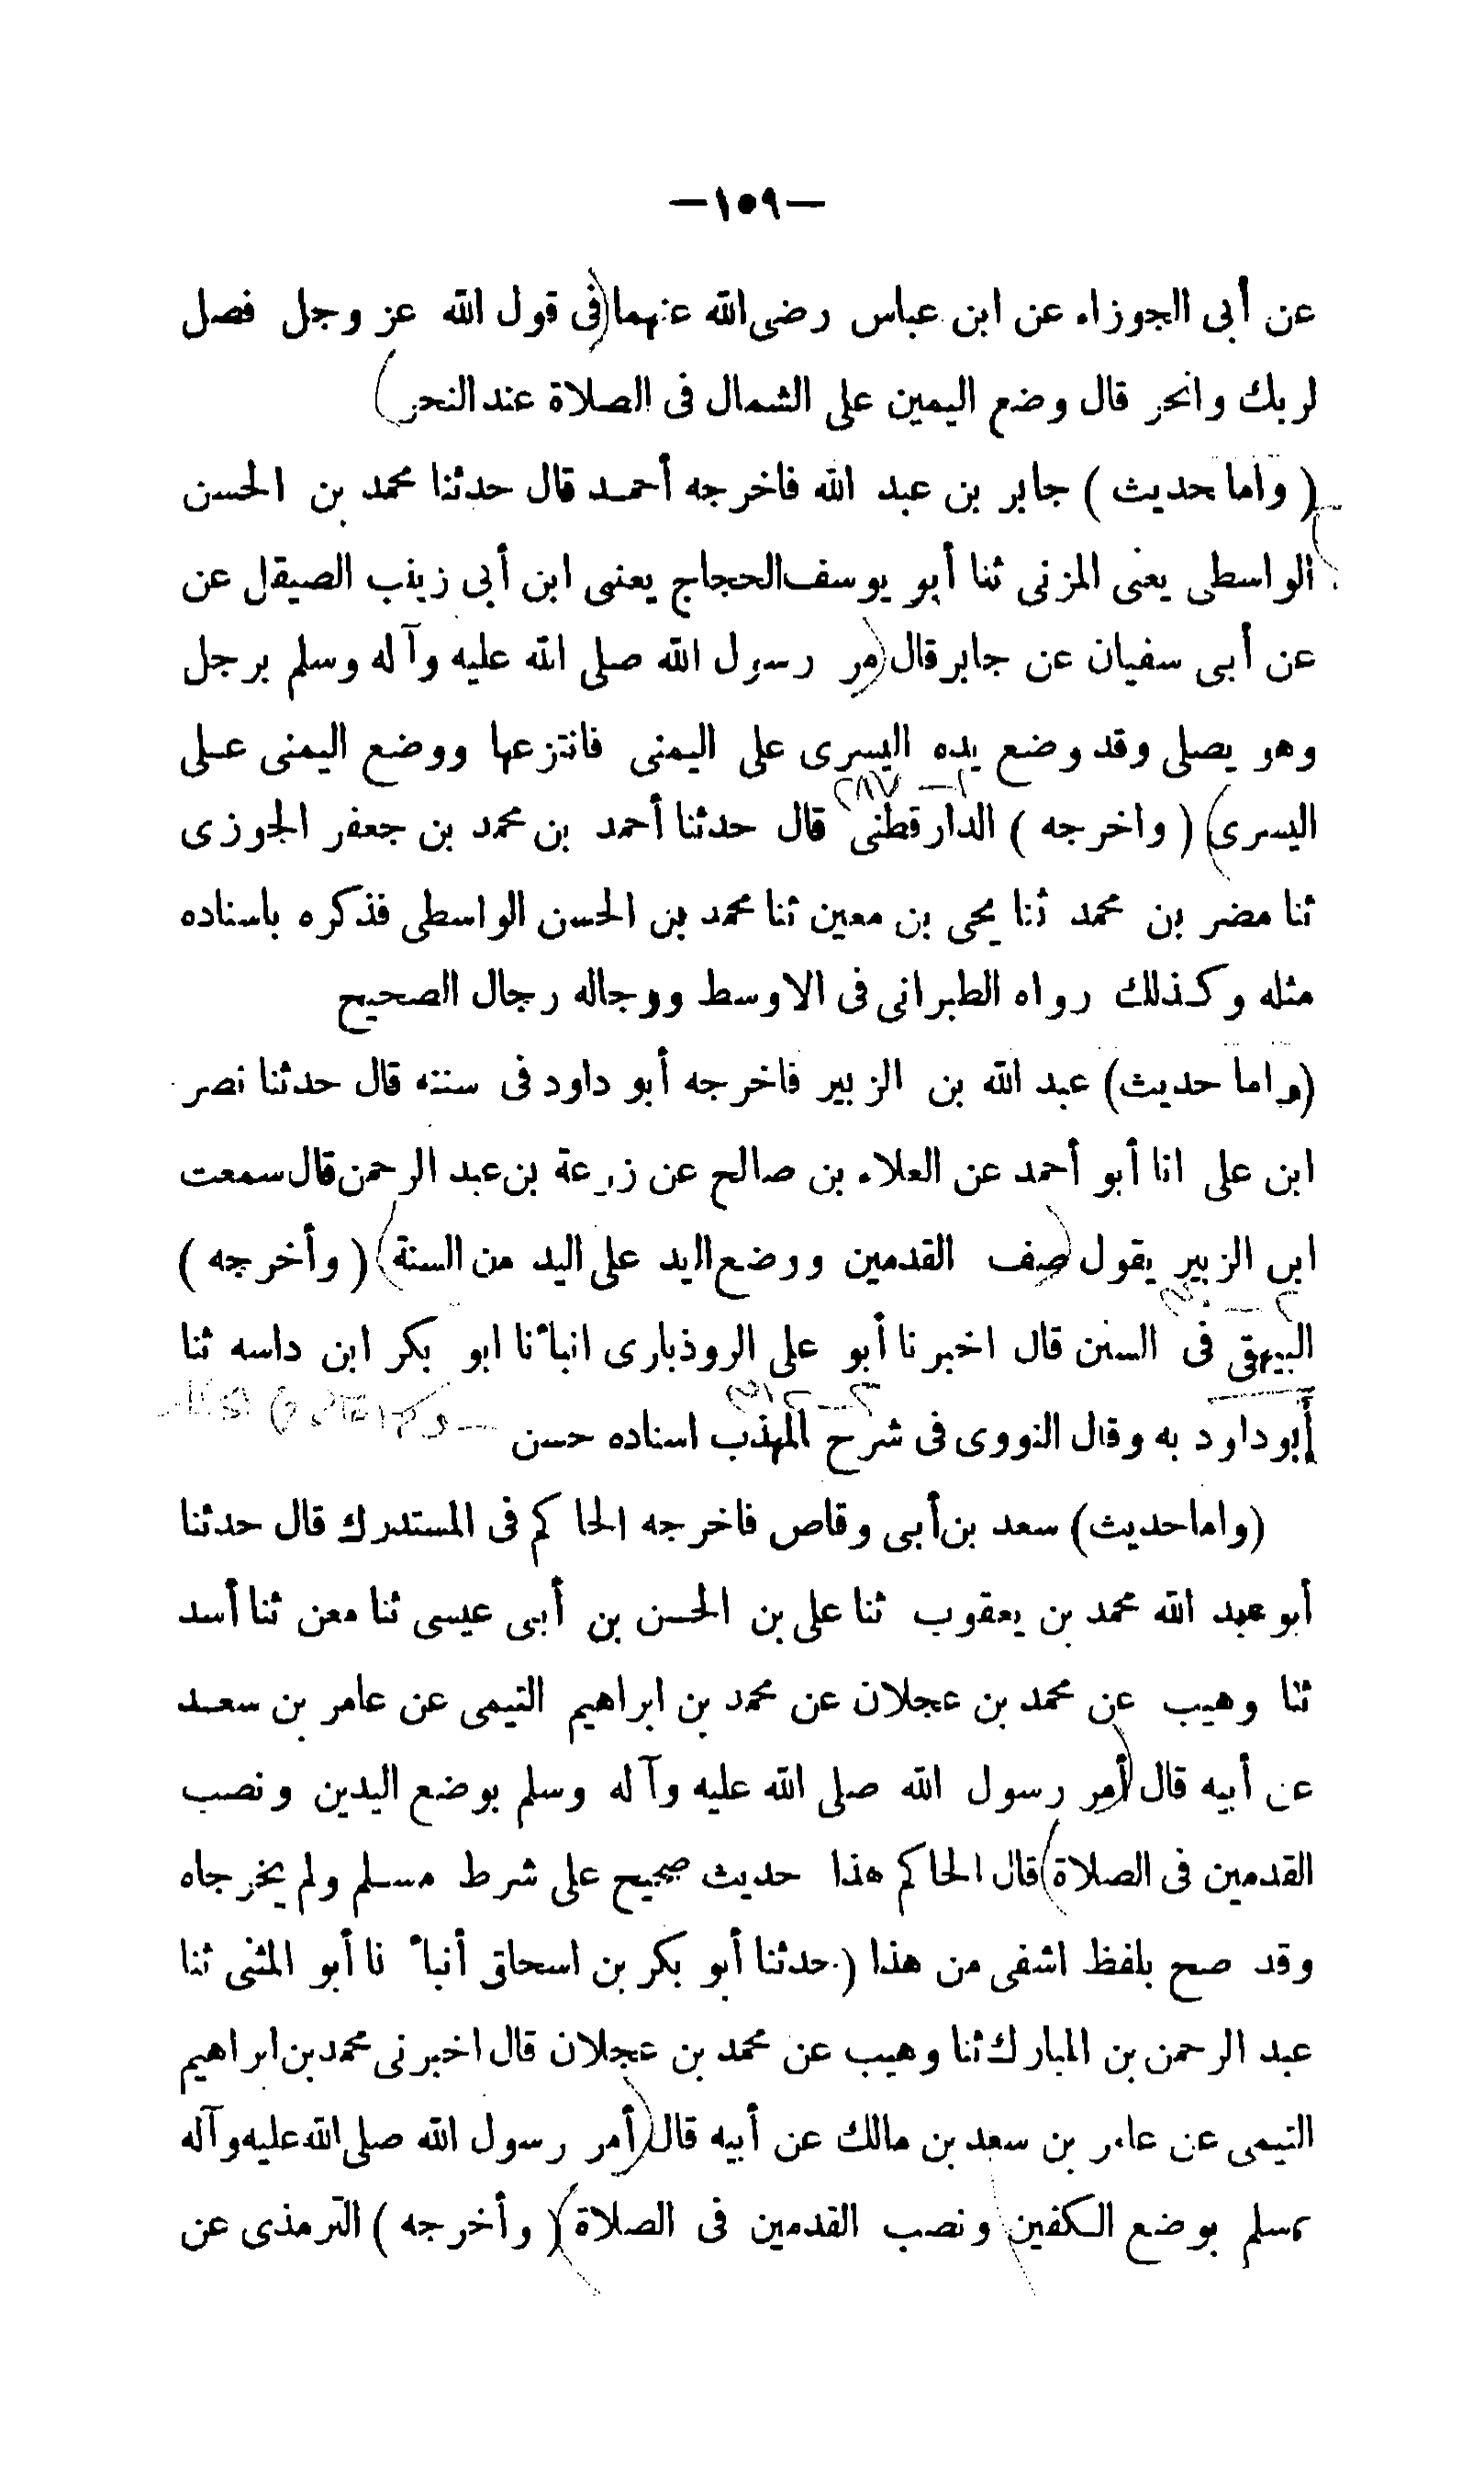 —١٥٩—
عن أبى الجوزاء عن ابن عباس رضى الله عنهما (فى قول الله عز وجل فصل
لربك وانحر قال وضع اليمين على الشمال فى الصلاة عند النحر)
( واما حديث ) جابر بن عبد الله فاخرجه أحمد قال حدثنا محمد بن الحسن
الواسطى يعنى المزنى ثنا أبو يوسف الحجاج يعنى ابن أبى زينب الصيقل عن
عن أبى سفيان عن جابر قال (مر رسول الله صلى الله عليه وآله وسلم برجل
وهو يصلى وقد وضع يده اليسرى على اليمنى فانتزعها ووضع اليمنى على
اليسرى) ( واخرجه ) الدارقطنى قال حدثنا أحمد بن محمد بن جعفر الجوزى
ثنا مضر بن محمد ثنا يحي بن معين ثنا محمد بن الحسن الواسطى فذكره باسناده
مثله وكذلك رواه الطبرانى فى الاوسط ورجاله رجال الصحيح
(واما حديث) عبد الله بن الزبير فاخرجه أبو داود فى سننه قال حدثنا نصر
ابن على انا أبو أحمد عن العلاء بن صالح عن زرعة بن عبد الرحمن قال سمعت
ابن الزبير يقول (صف القدمين ووضع اليد على اليد من السنة) ( وأخرجه )
٢ــ٣٠
البيهقى فى السنن قال اخبرنا أبو على الروذبارى انبأنا ابو بكر ابن داسه ثنا
أبو داود به وقال النووى فى شرح المهذب اسناده حسن
(واما حديث) سعد بن أبى وقاص فاخرجه الحاكم فى المستدرك قال حدثنا
أبو عبد الله محمد بن يعقوب ثنا على بن الحسن بن أبى عيسى ثنا معن ثنا أسد
ثنا وهيب عن محمد بن عجلان عن محمد بن ابراهيم التيمى عن عامر بن سعد
عن أبيه قال (أمر رسول الله صلى الله عليه وآله وسلم بوضع اليدين ونصب
القدمين فى الصلاة) قال الحاكم هذا حديث صحيح على شرط مسلم ولم يخرجاه
وقد صح بلفظ اشفى من هذا ( حدثنا أبو بكر بن اسحاق أنبأ نا أبو المثنى ثنا
عبد الرحمن بن المبارك ثنا وهيب عن محمد بن عجلان قال اخبرنى محمد بن ابراهيم
التيمى عن عامر بن سعد بن مالك عن أبيه قال (أمر رسول الله صلى الله عليه وآله
وسلم بوضع الكفين ونصب القدمين فى الصلاة) ( وأخرجه ) الترمذى عن